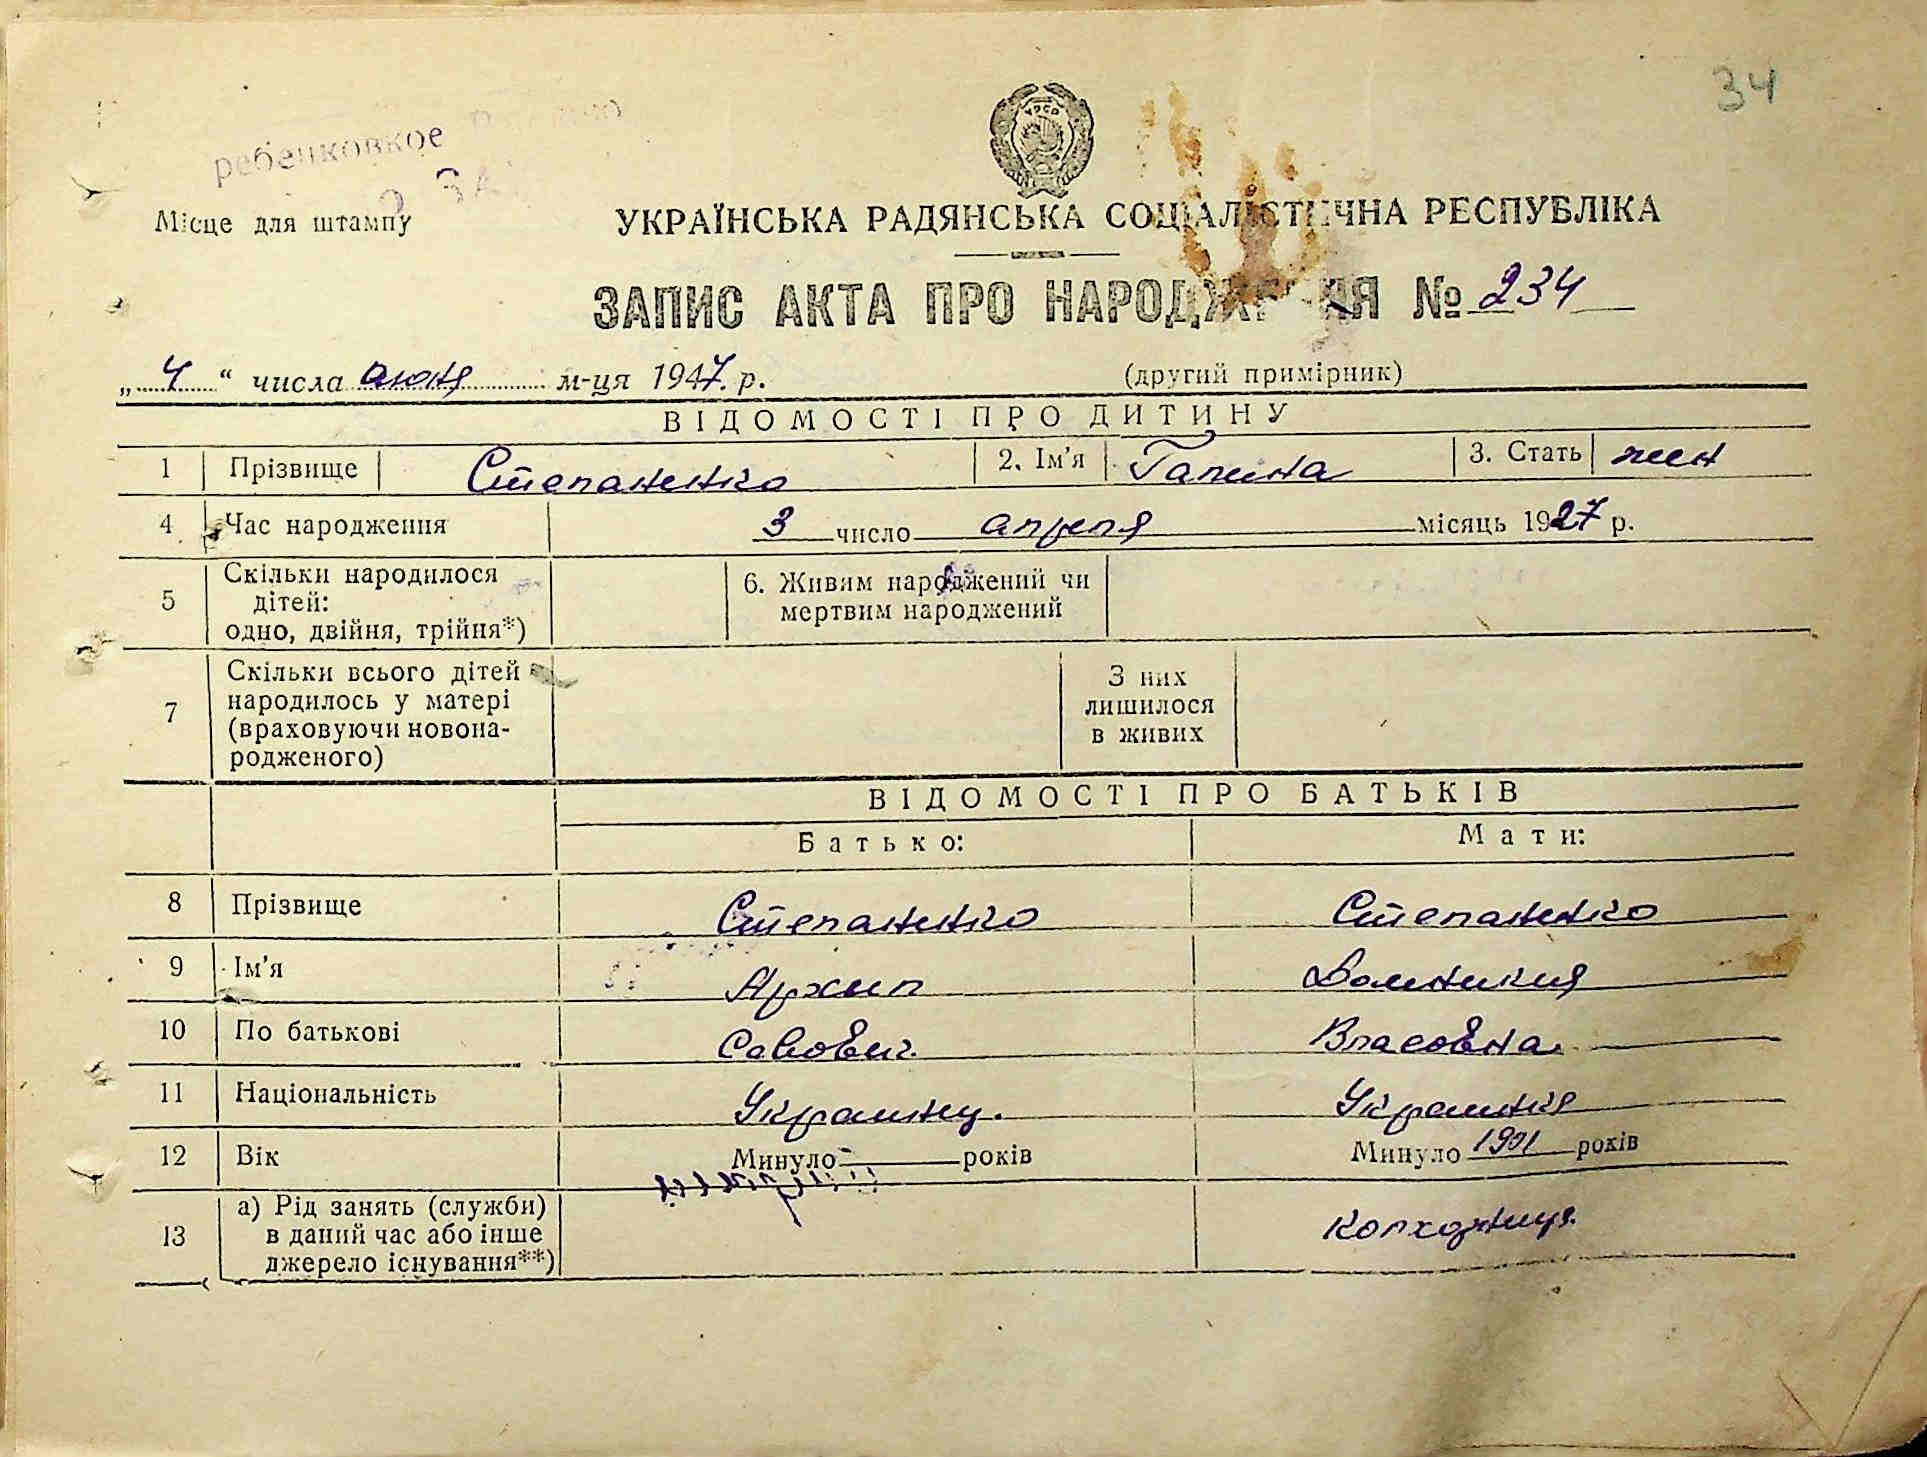 34
Місце для штампу
УКРАЇНСЬКА РАДЯНСЬКА СОЦІАЛІСТИЧНА РЕСПУБЛІКА
ЗАПИС АКТА ПРО НАРОДЖЕННЯ № 234
„ 4 “ числа июня м-ця 1947. р. (другий примірник)
ВІДОМОСТІ ПРО ДИТИНУ
1 Прізвище Степаненко 2. Ім'я Галина 3. Стать жен
4 Час народження 3 число апреля місяць 1927 р.
5 Скільки народилося дітей: одно, двійня, трійня*) 6. Живим народжений чи мертвим народжений
7 Скільки всього дітей народилось у матері (враховуючи новонародженого) З них лишилося в живих
ВІДОМОСТІ ПРО БАТЬКІВ
Батько: Мати:
8 Прізвище Степаненко Степаненко
9 Ім'я Архип Домникия
10 По батькові Савович. Власовна
11 Національність Украинец. Украинка
12 Вік Минуло — років Минуло 1901 років
13 а) Рід занять (служби) в даний час або інше джерело існування**) Колхозница.